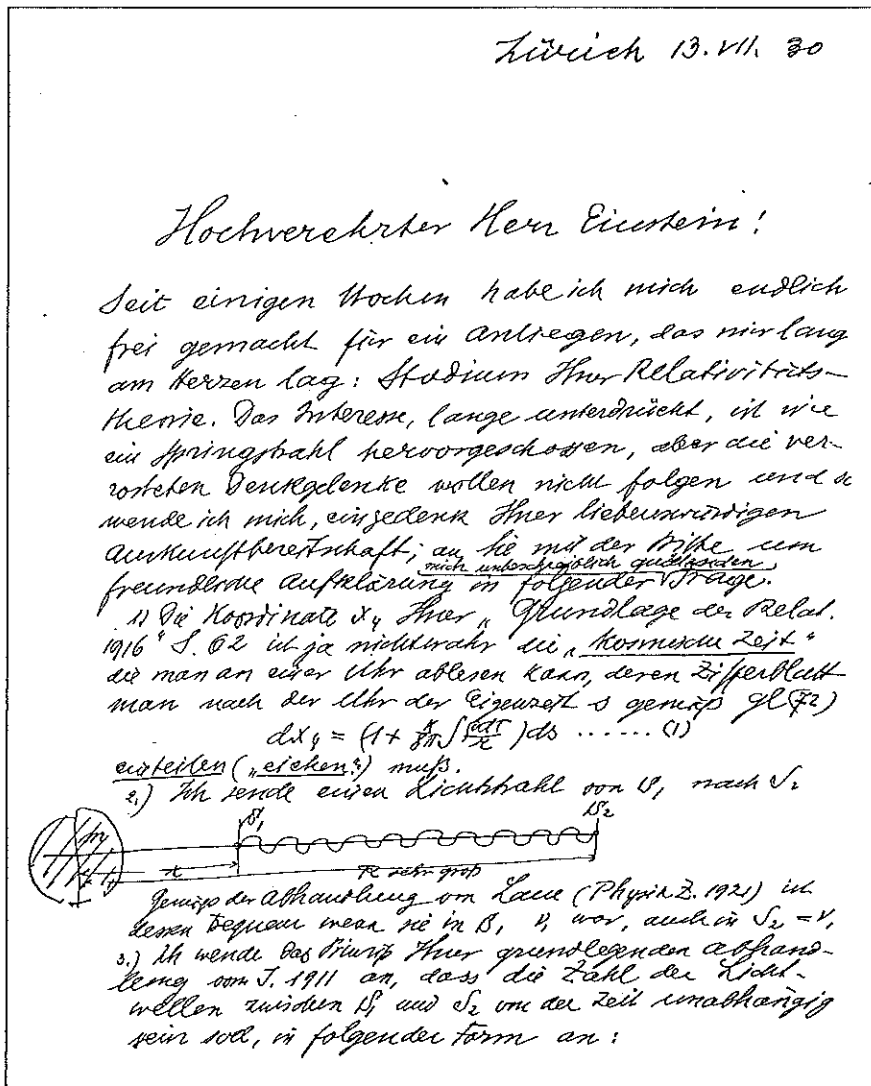 Zürich 13. VII. 30
Hochverehrter Herr Einstein!
Seit einigen Wochen habe ich mich endlich
frei gemacht für ein Anliegen, das mir lang
am Herzen lag: Studium Ihrer Relativitäts-
theorie. Das Interesse, lange unterdrückt, ist wie
ein Springstrahl hervorgeschossen, aber die ver-
rosteten Denkgelenke wollen nicht folgen und so
wende ich mich, eingedenk Ihrer liebenswürdigen
Auskunftbereitschaft, an Sie mit der Bitte um
mich unbeschreiblich quälenden
freundliche Aufklärung in folgender Frage.
1) Die Koordinate x₄ Ihrer „Grundlage der Relat.
1916" S. 62 ist ja nichtwahr die „kosmische Zeit"
die man an einer Uhr ablesen kann, deren Zifferblatt
man nach der Uhr der Eigenzeit s gemäß gl (72)
dx₄ = (1 + κ/8π ∫ σdτ/r) ds ...... (1)
einteilen („eichen") muß.
2.) Ich sende einen Lichtstrahl von S₁ nach S₂
S₁ S₂
r R sehr groß
Gemäss der Abhandlung von Laue (Physik Z. 1921) ist
dessen Frequenz wenn sie in S₁ ν₁ war, auch in S₂ = ν₁
3.) Ich wende das Prinzip Ihrer grundlegenden Abhand-
lung vom J. 1911 an, dass die Zahl der Licht-
wellen zwischen S₁ und S₂ von der Zeit unabhängig
sein soll, in folgender Form an: